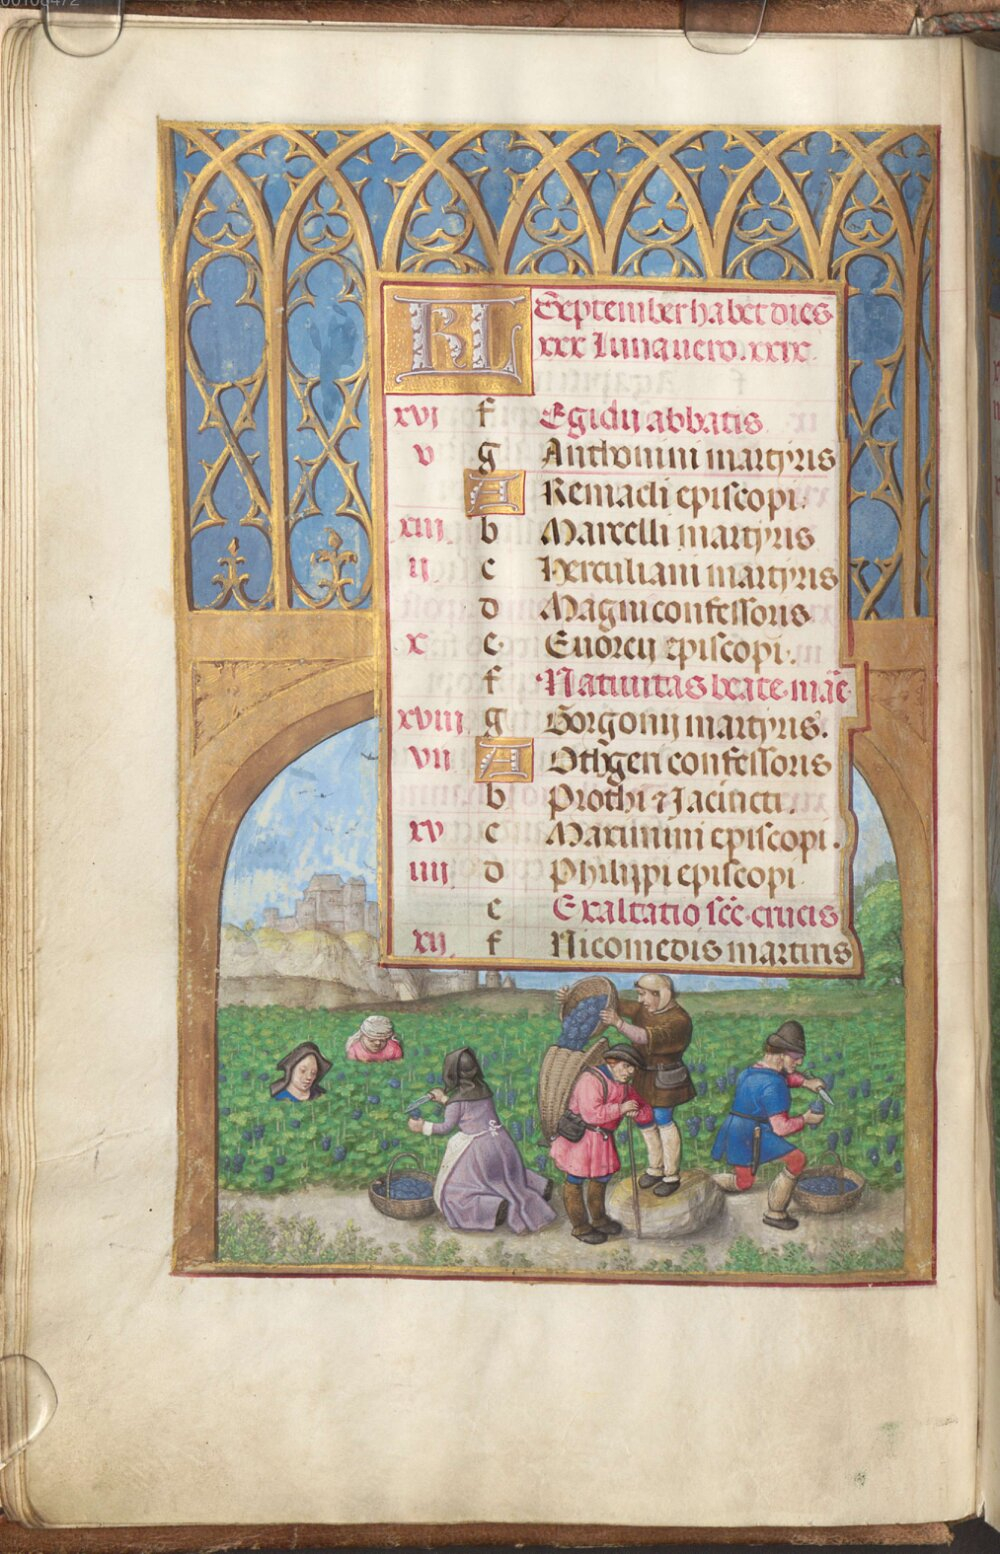 00108472
KL September habet dies
xxx Luna uero. xxix.
xvj f Egidij abbatis
v g Anthonini martyris
A Remacli episcopi.
xiij. b Marcelli martyris
ij c Herculiani martyris
d Magni confessoris
x e Euorcij episcopi.
f Natiuitas beate marie
xviij g Gorgonij martyris.
vij A Othgeri confessoris
b Prothi ⁊ Jacincti.
xv c Maximini episcopi.
iiij d Philippi episcopi
e Exaltatio scē crucis
xij. f Nicomedis martiris